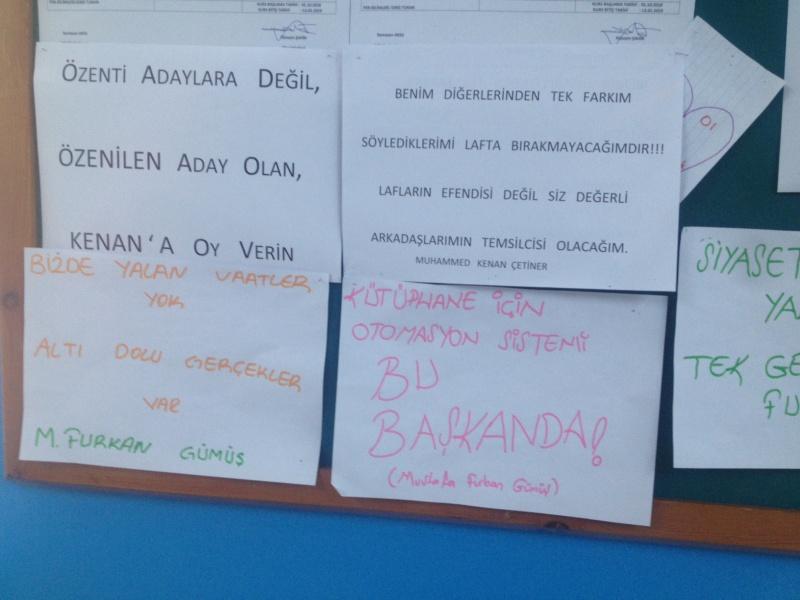 KURS BAŞLAMA TARİHİ
KURS BİTİŞ TARİHİ
KURS BAŞLAMA TARİHİ
KURS BİTİŞ TARİHİ
ÖZENTİ ADAYLARA DEĞİL,
ÖZENİLEN ADAY OLAN,
KENAN'A OY VERİN
BENİM DİĞERLERİNDEN TEK FARKIM
SÖYLEDİKLERİMİ LAFTA BIRAKMAYACAĞIMDIR!!!
LAFLARIN EFENDİSİ DEĞİL SİZ DEĞERLİ
ARKADAŞLARIMIN TEMSİLCİSİ OLACAĞIM.
MUHAMMED KENAN ÇETİNER
10
BİZDE YALAN VAATLER
YOK
ALTI DOLU GERÇEKLER
VAR
M. FURKAN GÜMÜŞ
KÜTÜPHANE İÇİN
OTOMASYON SİSTEMİ
BU
BAŞKANDA!
(Mustafa Furkan Gümüş)
SİYASET
YA
TEK GE
FU